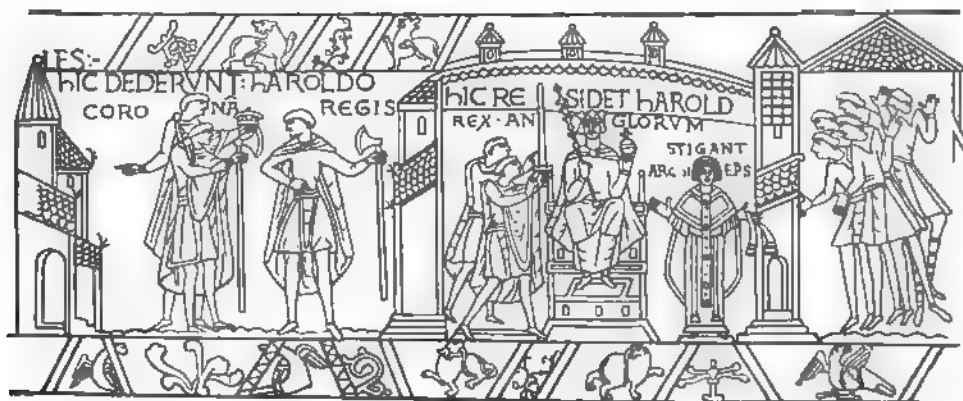 IES:-
hIC DEDERVNT: hAROLDO
CORO NĀ REGIS
hIC RE SIDET hAROLD
REX·AN GLORVM
STIGANT
ARCHI EPS